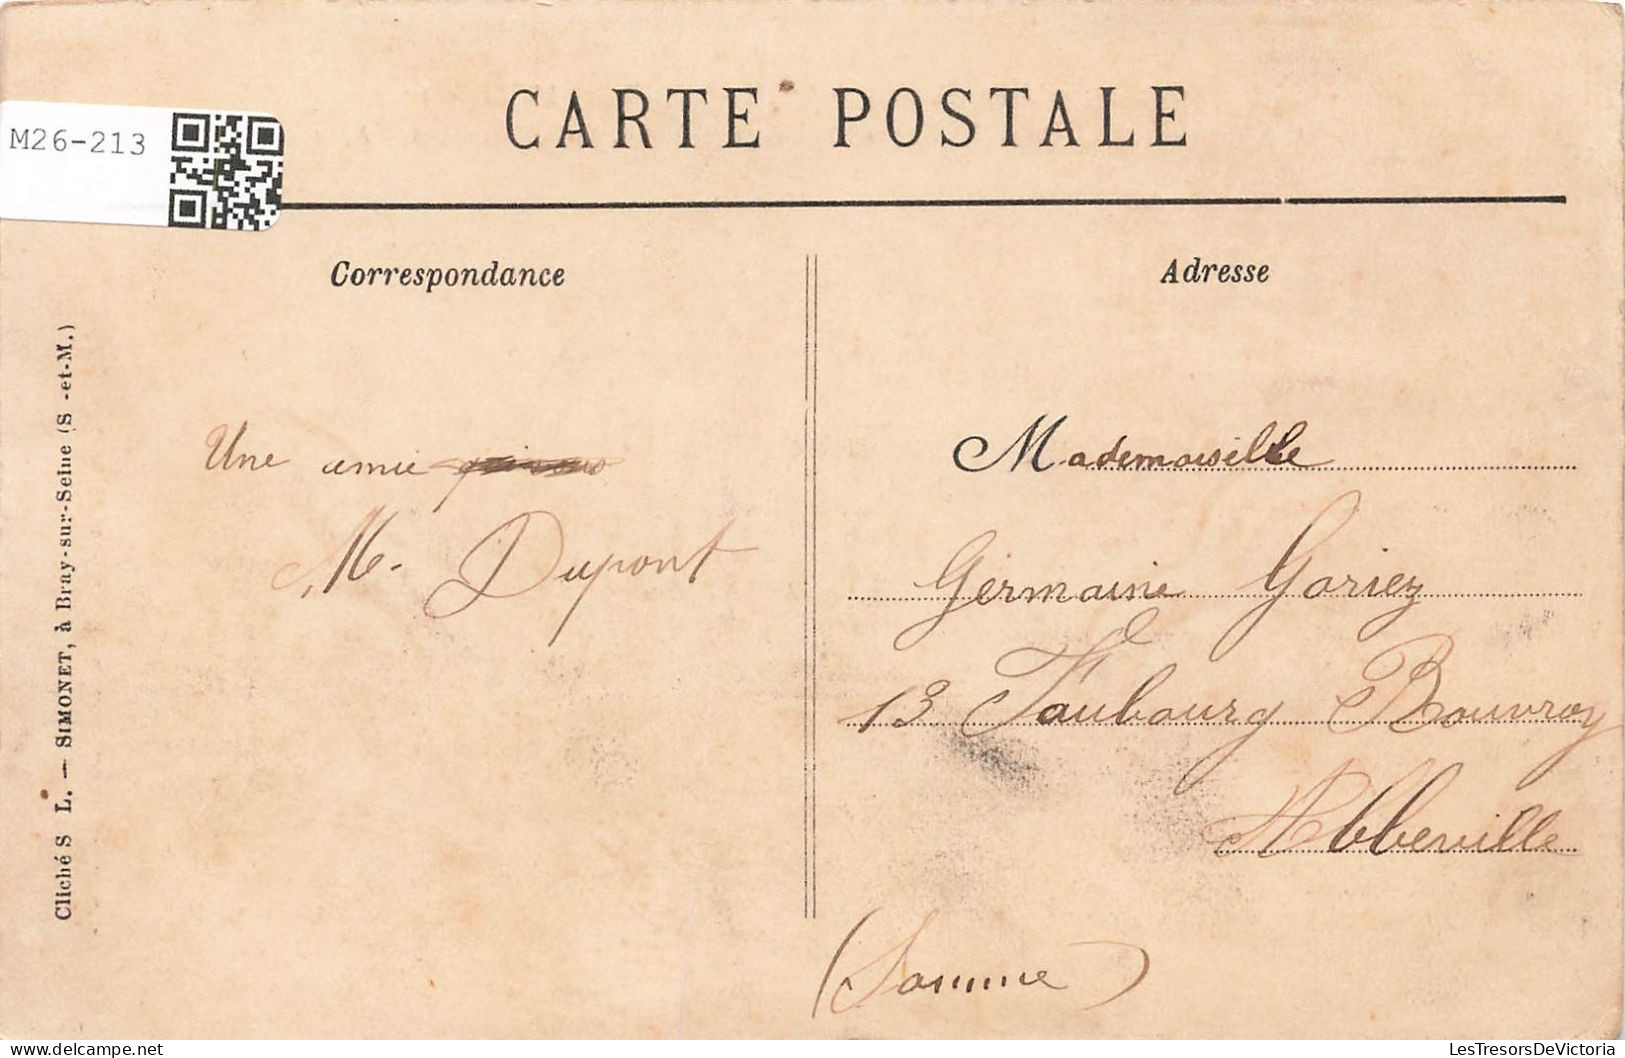 CARTE POSTALE
M26-213
Correspondance
Adresse
Une amie
M. Dupont
Mademoiselle
Germaine Gariez
13 Faubourg Bouvroy
Abbeville
(Somme)
Clichés L. — SIMONET, à Bray-sur-Seine (S.-et-M.)
delcampe.net
LesTresorsDeVictoria